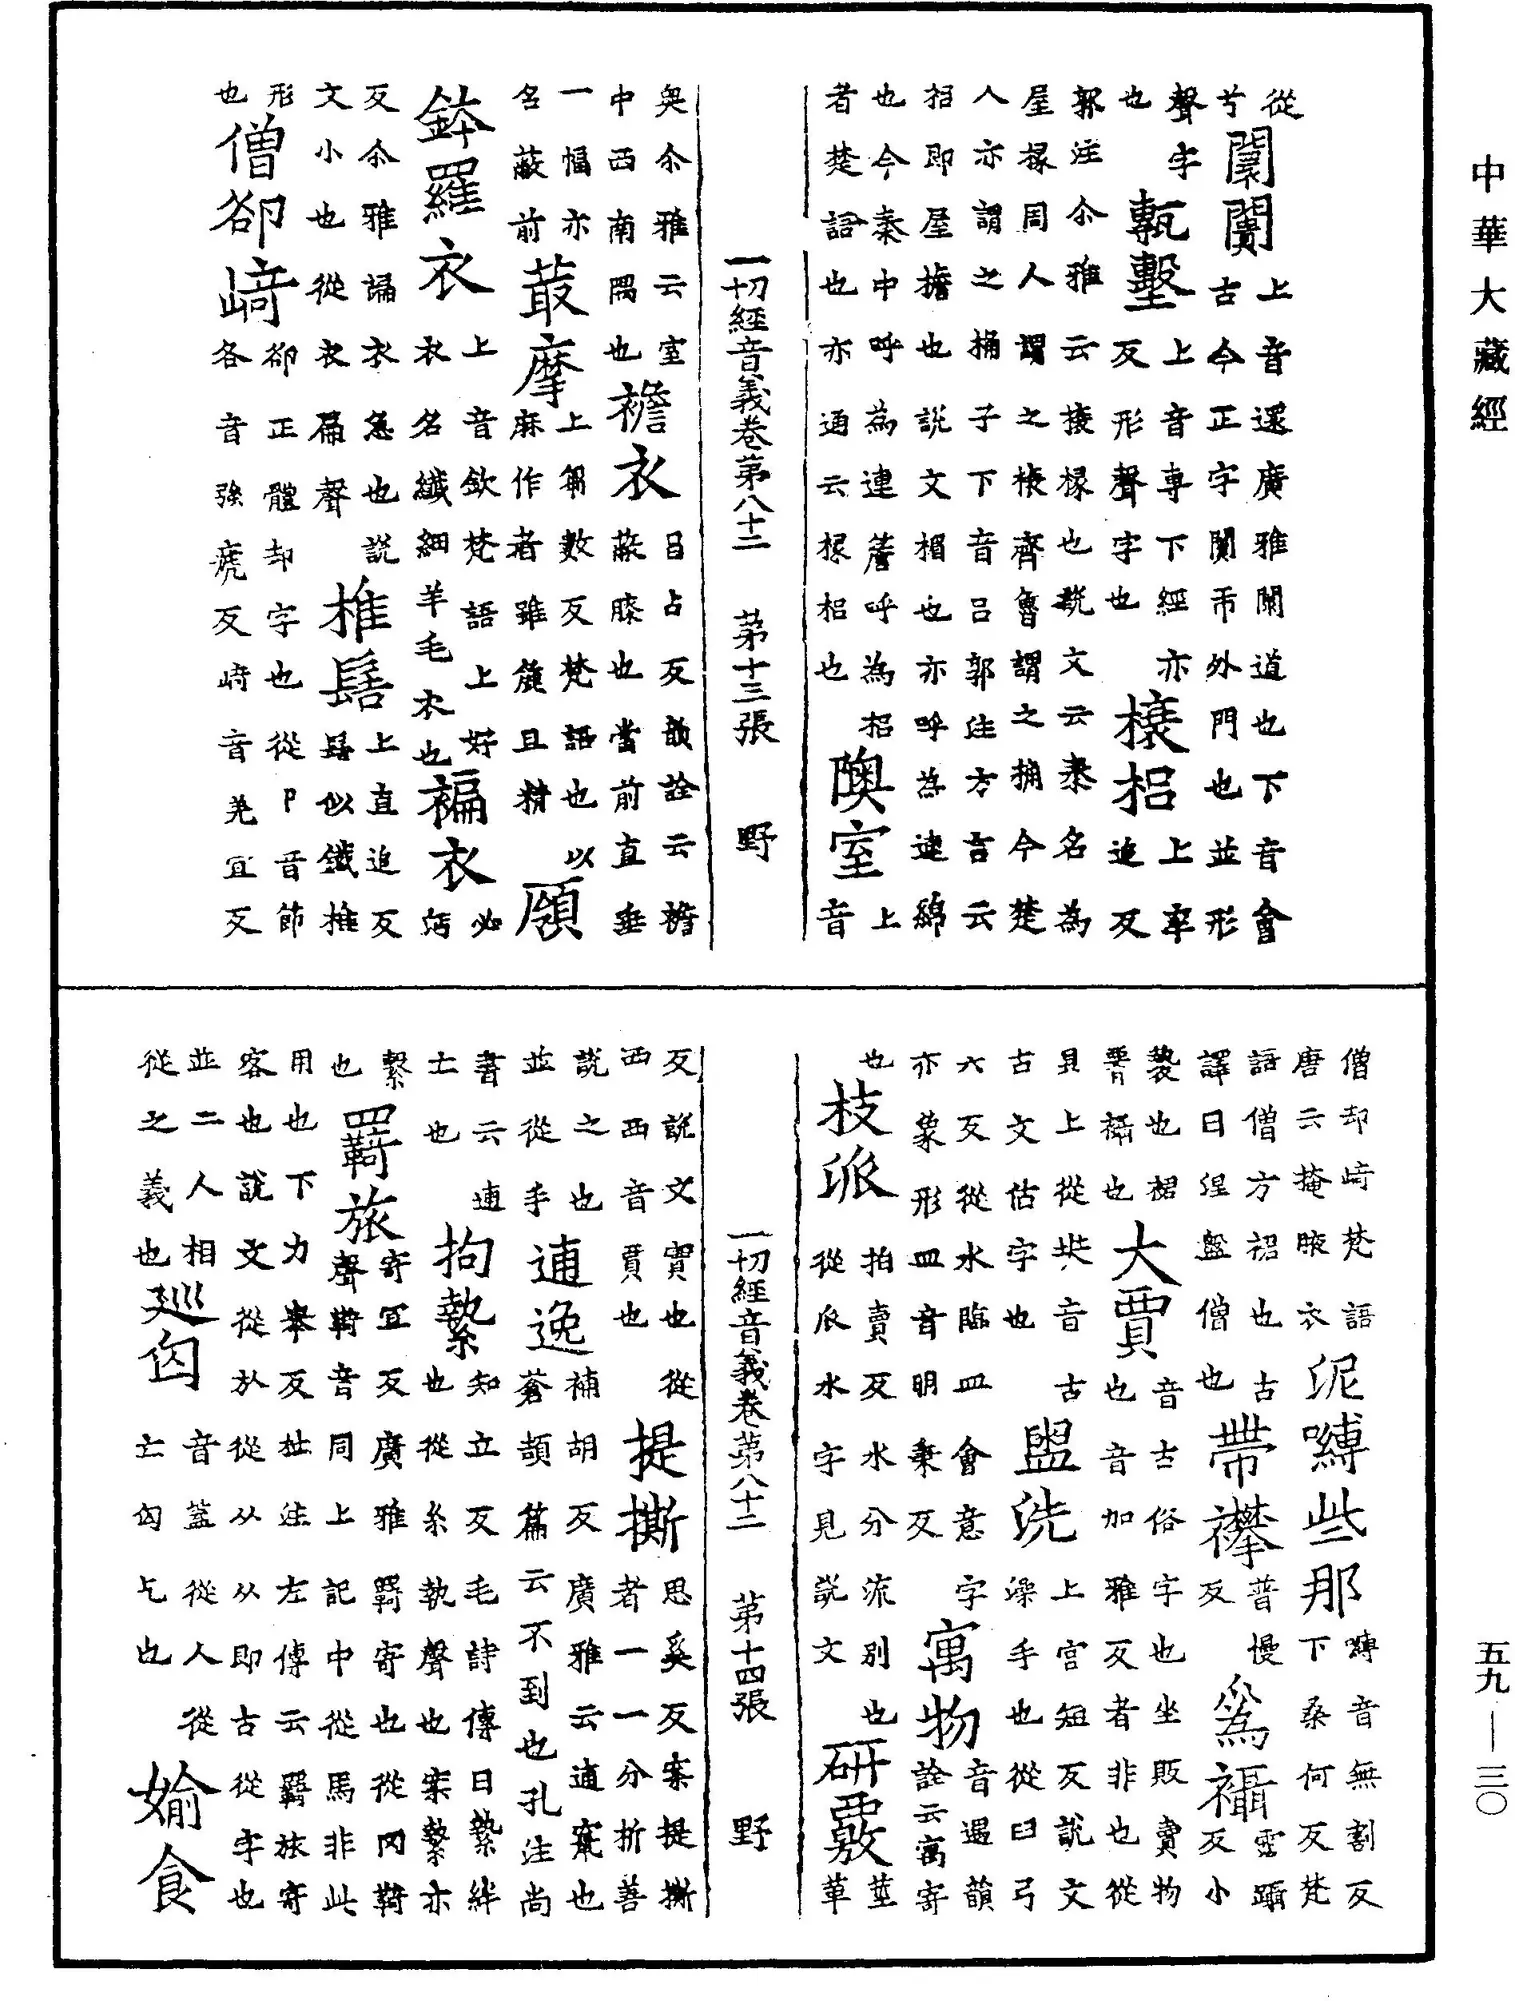 中華大藏經
從
兮
闤闠
上音還廣雅闤道也下音會
古今正字闠市外門也並形
聲字
也
甎墼
上音專下經亦
反形聲字也
榱梠
上率
追反
郭注尒雅云榱椽也說文云秦名為
屋椽周人謂之榱齊魯謂之桷今楚
人亦謂之桷子下音呂郭注方言云
梠即屋檐也說文楣也亦呼為連綿
也今秦中呼為連簷呼為梠
者楚語也亦通云梠也
隩室
上
音
一切經音義卷第八十二 第十三張 野
奧尒雅云室
中西南隅也
襜衣
昌占反韻詮云襜
蔽膝也當前直垂
一幅亦
名蔽前
菆摩
上芻數反梵語也以
麻作者雖麤且精
頞
鉢羅衣
上音欽梵語上好
衣名纖細羊毛衣也
褊衣
必
沔
反尒雅誦衣急也說
文小也從衣扁聲
椎髻
上直追反
髻似鐵椎
形
也
僧卻崎
卻正體却字也從卩音節
各音強虐反崎音羌宜反
僧却崎梵語
唐云掩腋衣
泥嚩些那
嚩音無割反
下桑何反梵
語僧方裙也古
譯曰涅盤僧也
帶襻
普慢
反
為襵
霑躡
反小
褺也裙
襵也
大賈
音古俗字也坐販賣物
也音加雅反者非也從
貝上從音古
古文估字也
盥洗
上官短反說文
澡手也從臼弓
六反從水臨皿會意字
亦象形皿音明秉反
寓物
音遇韻
詮云寓寄
也
枝派
拍賣反水分流別也
從𠂢水字見說文
研覈
莖
革
一切經音義卷第八十二 第十四張 野
反說文實也從
西西音賈也
提撕
思奚反案提撕
者一一分析善
說之也
並從手
逋逸
補胡反廣雅云逋竄也
蒼頡篇云不到也孔注尚
書云逋
士也
拘縶
知立反毛詩傳曰縶絆
也從糸執聲也案縶亦
繫
也
羈旅
寄宜反廣雅羈寄也從网䩭
聲䩭音同上記中從馬非此
用也下力舉反杜注左傳云羈旅寄
客也說文從㫃從从从即古從字也
並二人相
從之義也
巡匃
音蓋從人從
亡匃乞也
媮食
五九—三〇